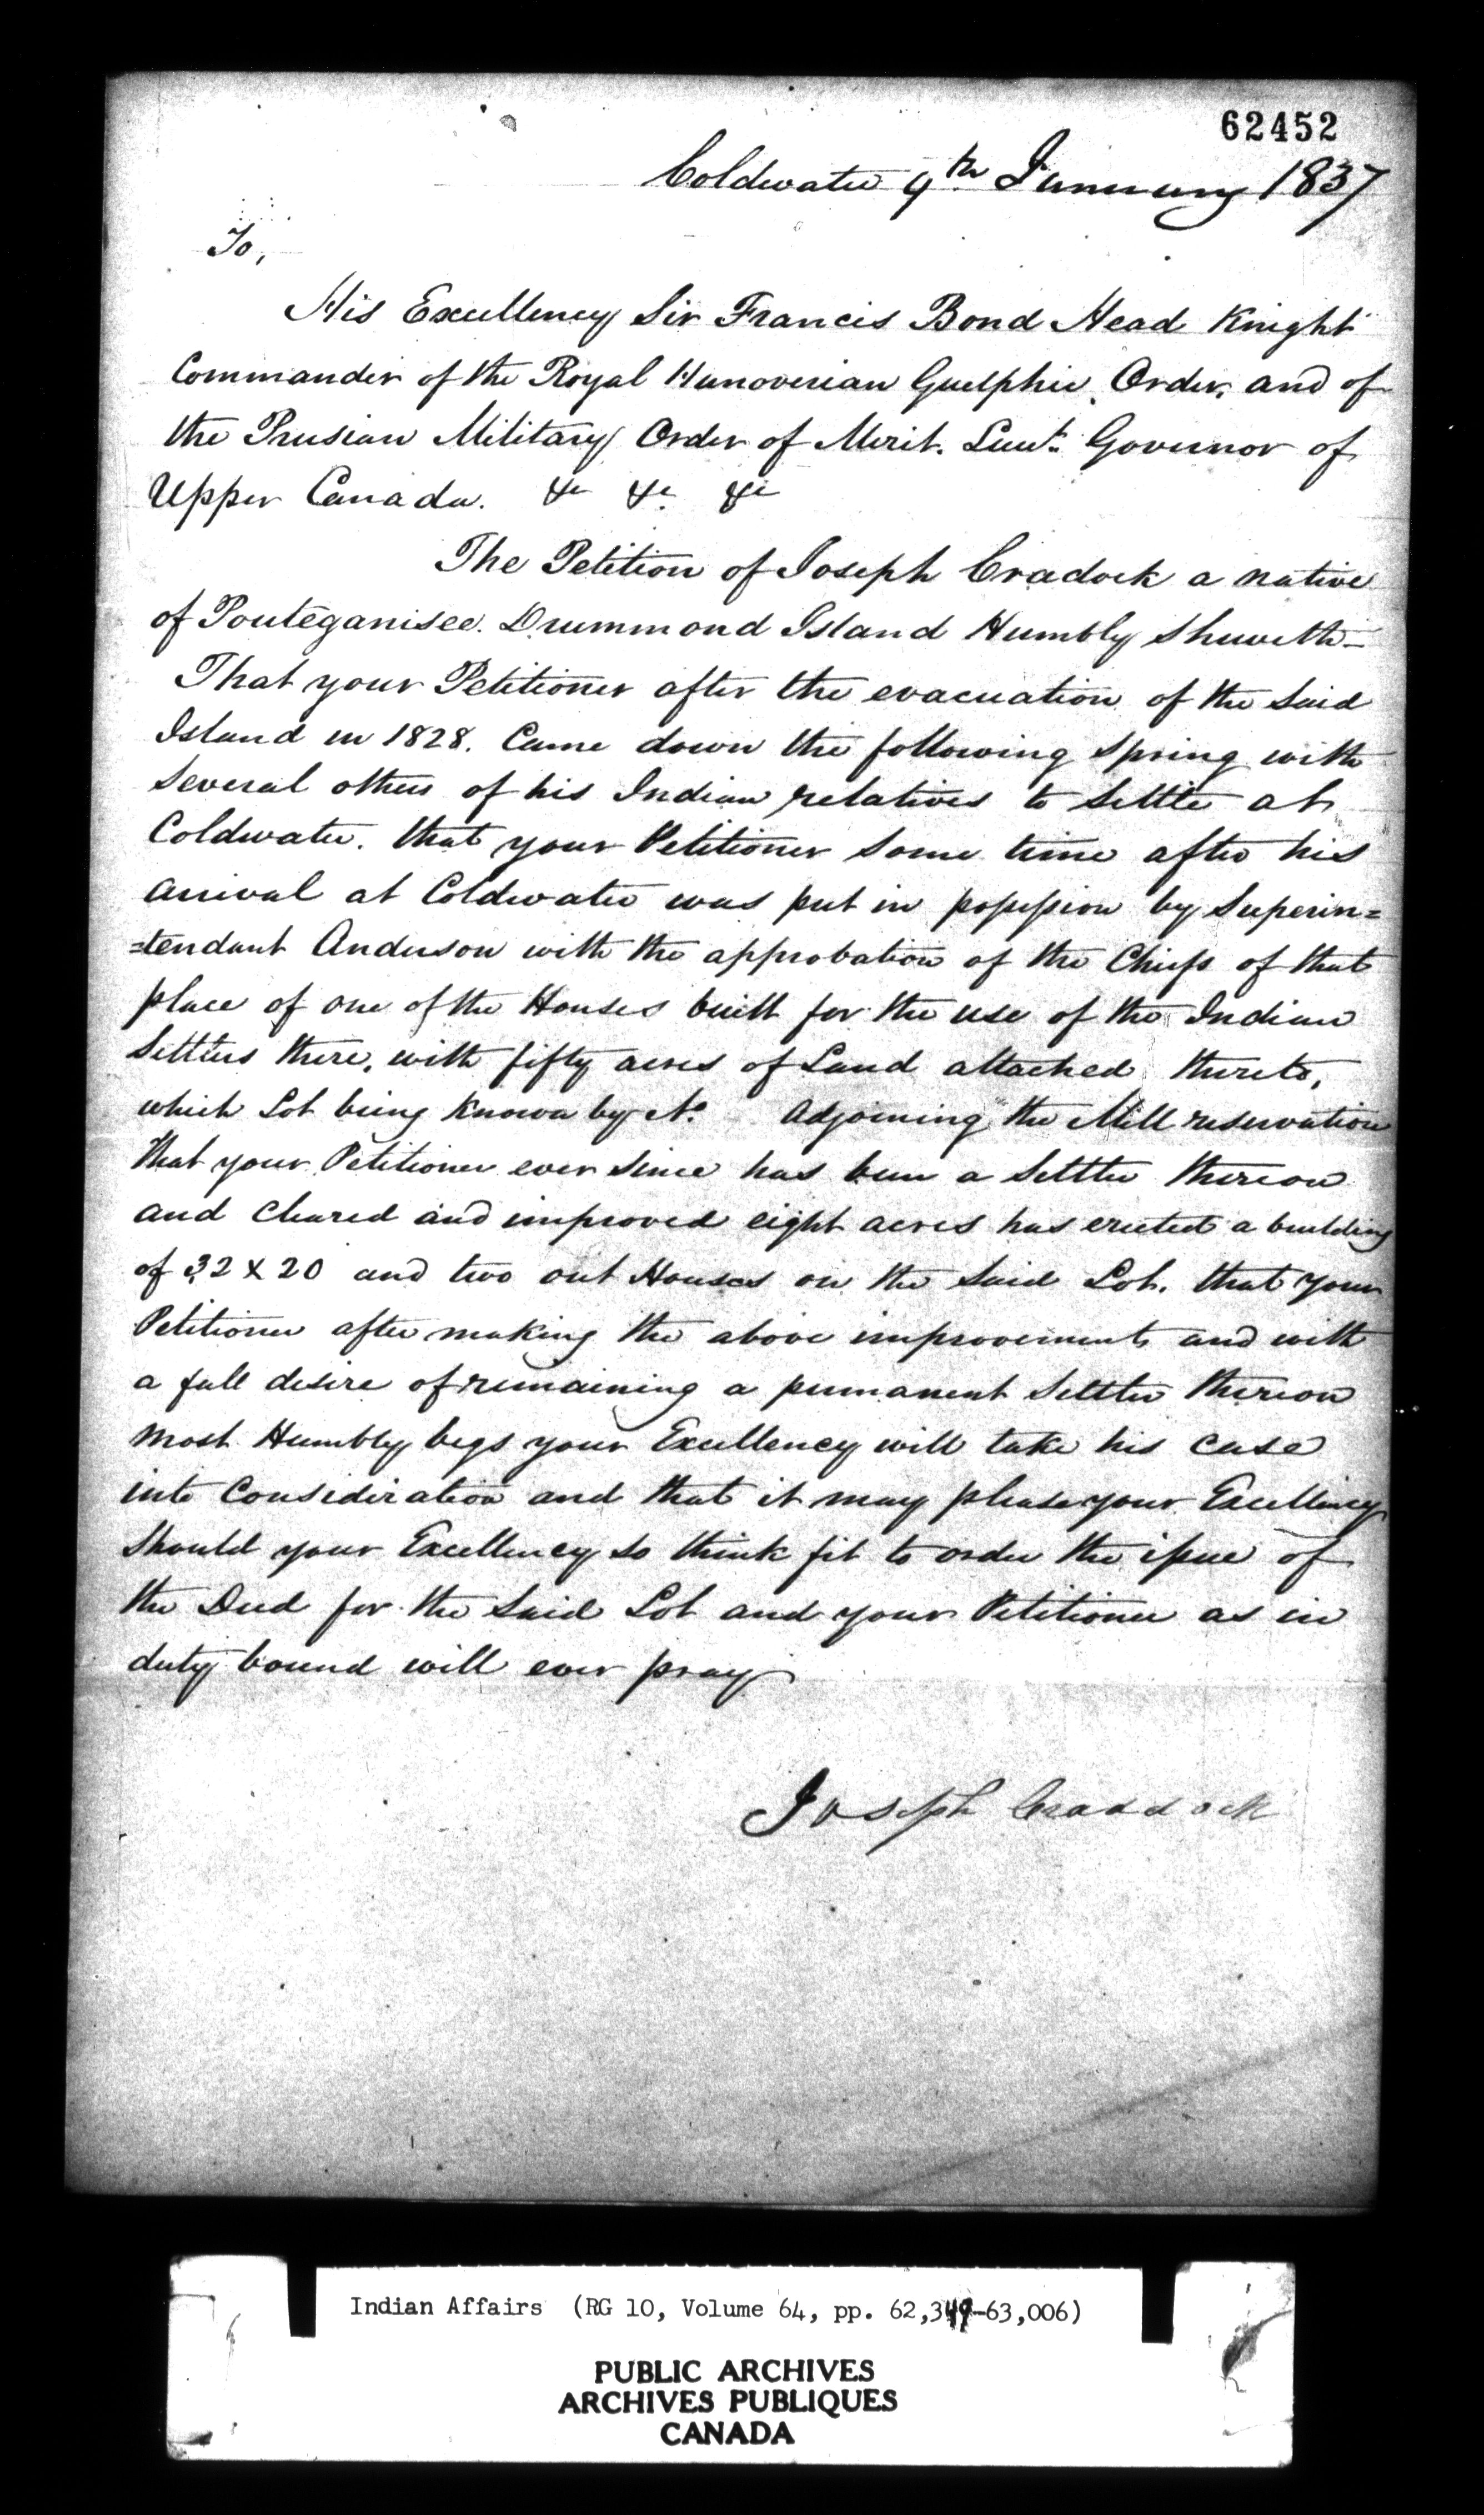 62452
Coldwater 9th January 1837
To,
His Excellency Sir Francis Bond Head Knight
Commander of the Royal Hanoverian Guelphic Order, and of
the Prusian Military Order of Merit. Lieut. Governor of
Upper Canada. &c &c. &c
The Petition of Joseph Cradock a native
of Pouteganisee. Drummond Island Humbly Sheweth-
That your Petitioner after the evacuation of the Said
Island in 1828. Came down the following Spring with
Several others of his Indian relatives to Settle at
Coldwater. that your Petitioner Some time after his
arrival at Coldwater was put in possession by Superin=
=tendant Anderson with the approbation of the Chiefs of that
place of one of the Houses built for the use of the Indian
Settlers there, with fifty acres of Land attached thereto,
which Lot being Known by No. Adjoining the Mill reservation
that your Petitioner ever Since has been a Settler thereon
and Cleared and improved eight acres has erected a building
of 32 x 20 and two out Houses on the Said Lot. that your
Petitioner after making the above improvements and with
a full desire of remaining a permanent Settler thereon
most Humbly begs your Excellency will take his case
into Consideration and that it may please your Excellency
Should your Excellency so think fit to order the issue of
the Deed for the Said Lot and your Petitioner as in
duty bound will ever pray
Joseph Craddock
Indian Affairs (RG 10, Volume 64, pp. 62,349-63,006)
PUBLIC ARCHIVES
ARCHIVES PUBLIQUES
CANADA